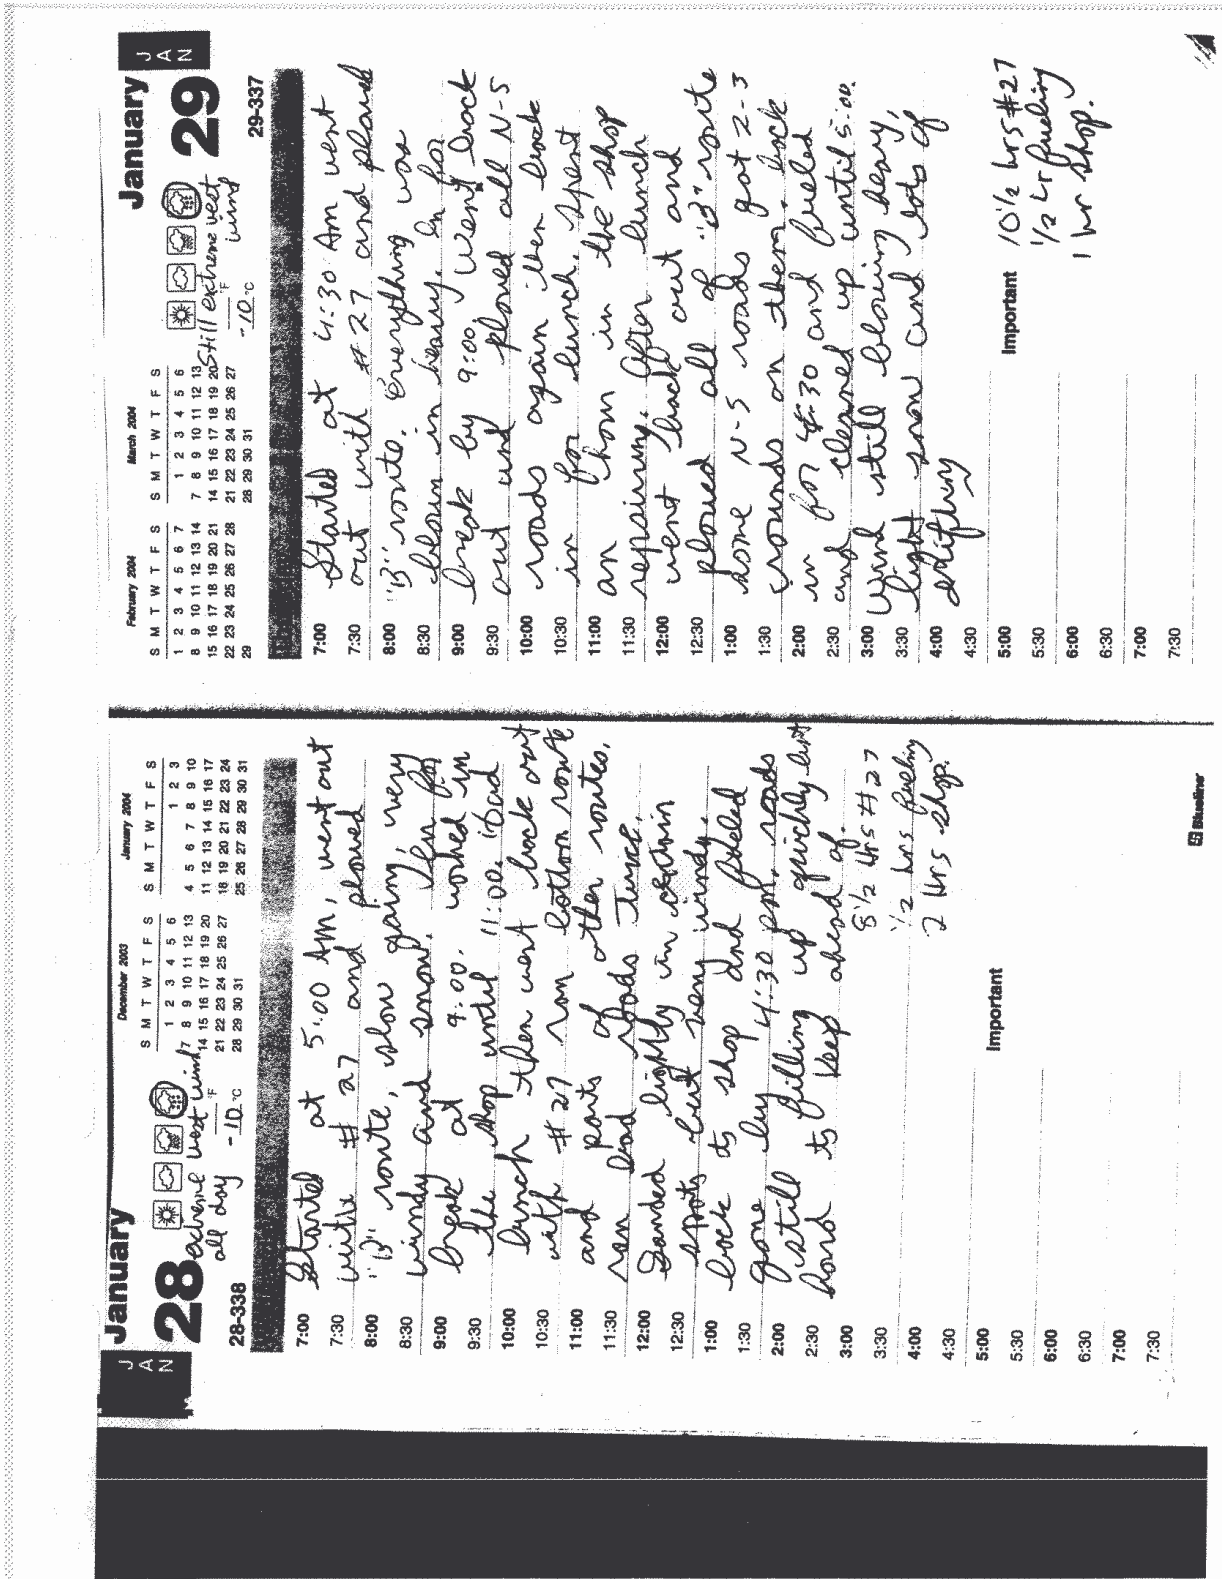 JAN
January
28
28-338
extreme west wind
all day
°F
-10 °C
December 2003
S M T W T F S
1 2 3 4 5 6
7 8 9 10 11 12 13
14 15 16 17 18 19 20
21 22 23 24 25 26 27
28 29 30 31
January 2004
S M T W T F S
1 2 3
4 5 6 7 8 9 10
11 12 13 14 15 16 17
18 19 20 21 22 23 24
25 26 27 28 29 30 31
7:00 Started at 5:00 AM, went out
7:30 with # 27 and plowed
8:00 "B" route, slow going, very
8:30 windy and snow. In for
9:00 break at 9:00. worked in
9:30 the shop until 11:00. Had
10:00 lunch then went back out
10:30 with #27 ran bottom route
11:00 and parts of other routes.
11:30 ran bad roads twice.
12:00 Sanded lightly in certain
12:30 spots but very windy.
1:00 back to shop and fueled
1:30 gone by 4:30 pm. roads
2:00 still filling up quickly but
2:30 hard to keep ahead of.
3:00 8 1/2 hrs #27
3:30 1/2 hrs fueling
4:00 2 hrs shop.
4:30
5:00
5:30
6:00
6:30
7:00
7:30
Important
Blueline
February 2004
S M T W T F S
1 2 3 4 5 6 7
8 9 10 11 12 13 14
15 16 17 18 19 20 21
22 23 24 25 26 27 28
29
March 2004
S M T W T F S
1 2 3 4 5 6
7 8 9 10 11 12 13
14 15 16 17 18 19 20
21 22 23 24 25 26 27
28 29 30 31
Still extreme west
wind
°F
-10 °C
January
29
29-337
JAN
7:00 Started at 4:30 AM went
7:30 out with #27 and plowed
8:00 "B" route. Everything was
8:30 blown in heavy. In for
9:00 break by 9:00. Went back
9:30 out and plowed all N-S
10:00 roads again then back
10:30 in for lunch. Spent
11:00 an hour in the shop
11:30 repairing. After lunch
12:00 went back out and
12:30 plowed all of "B" route
1:00 some N-S roads got 2-3
1:30 rounds on them. back
2:00 in for 4:30 and fueled
2:30 and cleaned up until 5:00.
3:00 Wind still blowing heavy,
3:30 light snow and lots of
4:00 drifting
4:30
5:00
5:30
6:00
6:30
7:00
7:30
Important
10 1/2 hrs #27
1/2 hr fueling
1 hr shop.